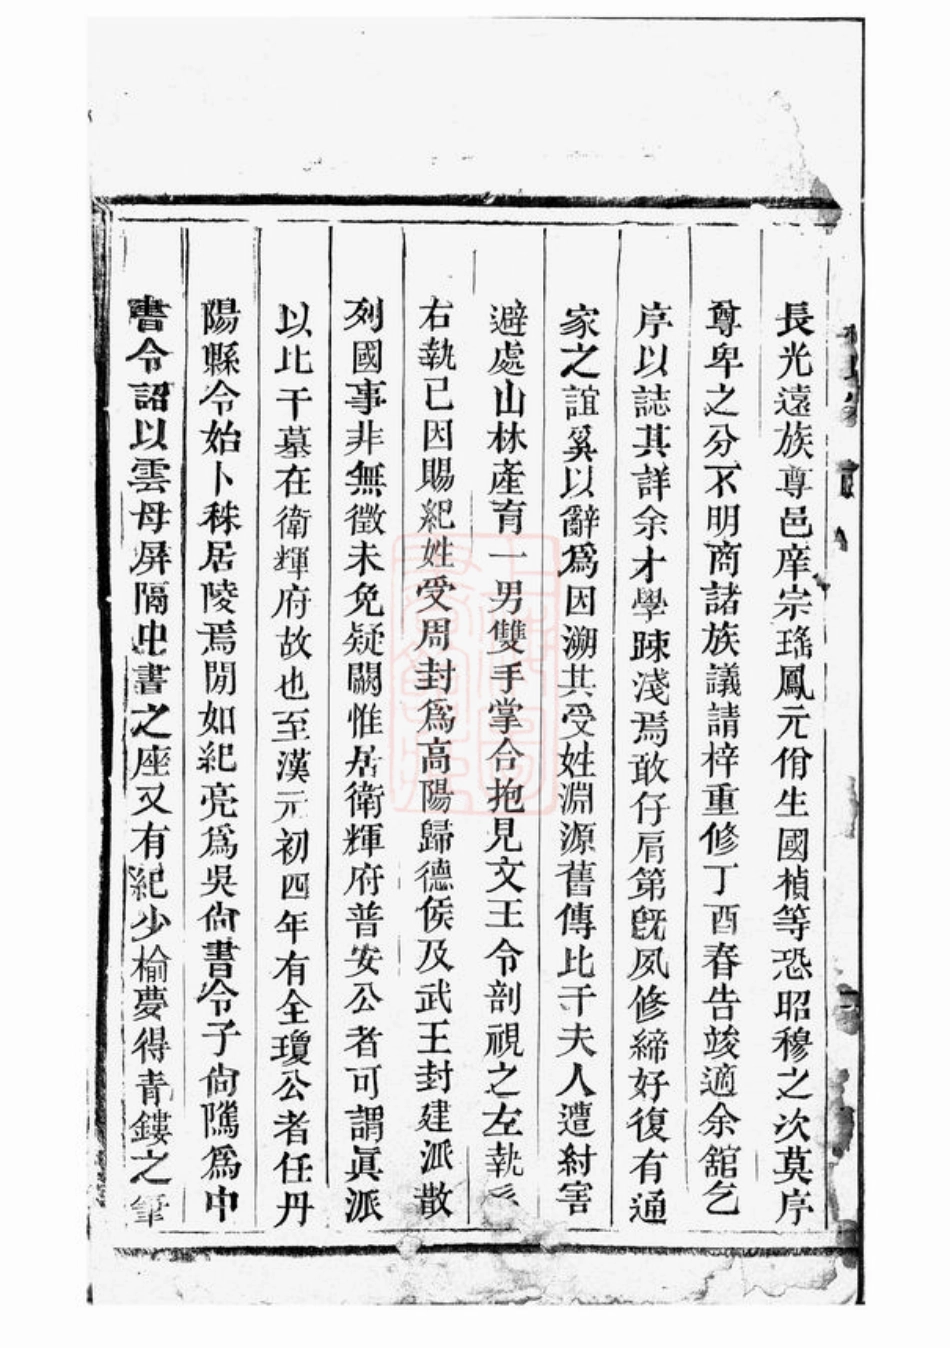 長光遠族尊邑庠宗瑤鳳元佾生國楨等恐昭穆之次莫序
尊卑之分不明商諸族議請梓重修丁酉春告竣適余舘乞
序以誌其詳余才學踈淺焉敢仔肩第既夙修締好復有通
家之誼奚以辭爲因溯其受姓淵源舊傳比干夫人遭紂害
避處山林產育一男雙手掌合抱見文王令剖視之左執糹
右執己因賜紀姓受周封爲高陽歸德侯及武王封建派散
列國事非無徵未免疑闕惟居衛輝府普安公者可謂眞派
以比干墓在衛輝府故也至漢元初四年有全瓊公者任丹
陽縣令始卜秣居陵焉閒如紀亮爲吳尙書令子尙隲爲中
書令詔以雲母屏隔中書之座又有紀少榆夢得青鏤之筆